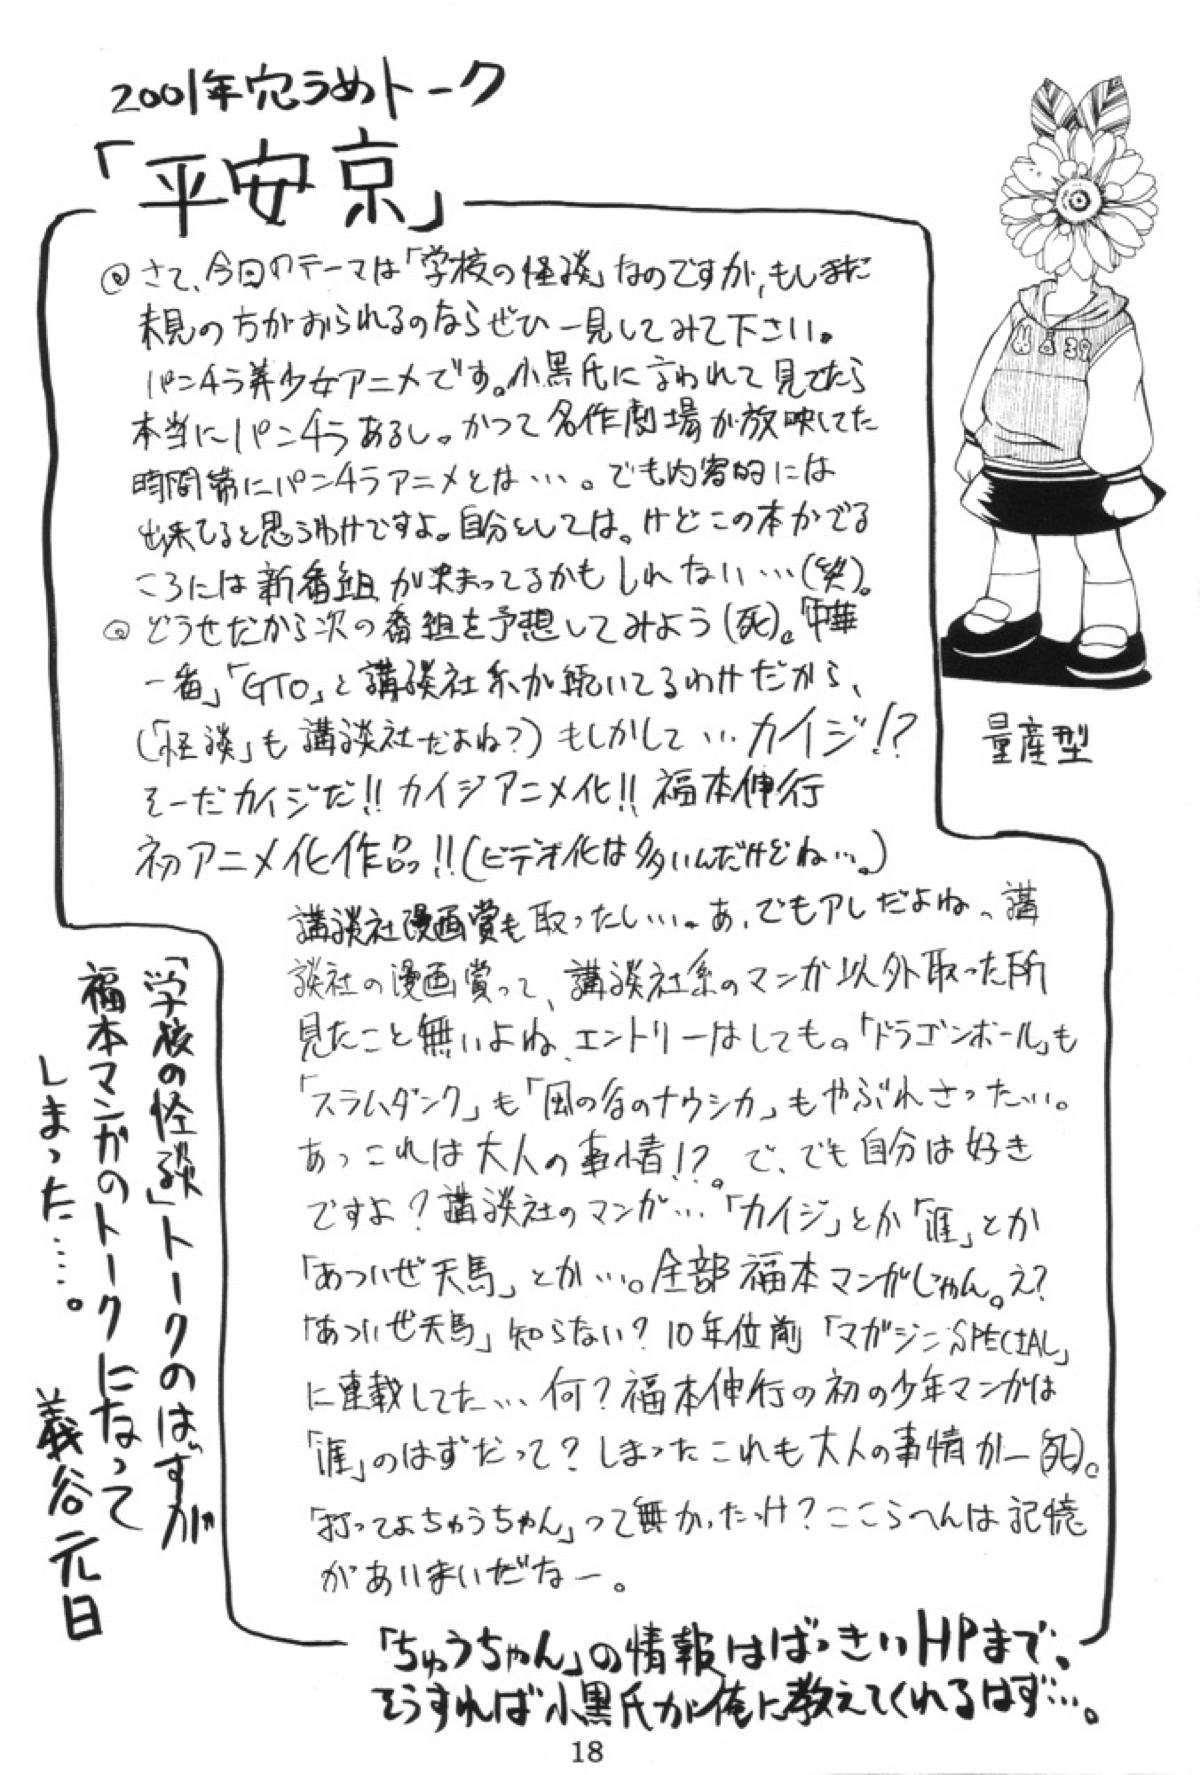 2001年穴うめトーク
「平安京」
◎さて、今日のテーマは「学校の怪談」なのですが、もしまだ
未見の方がおられるのならぜひ一見してみて下さい。
パンチラ美少女アニメです。小黒氏に言われて見てたら
本当にパンチラあるし。かつて名作劇場が放映してた
時間帯にパンチラアニメとは…。でも内容的には
出来てると思うわけですよ。自分としては。けどこの本がでる
ころには新番組が決まってるかもしれない…(笑)。
◎どうせだから次の番組を予想してみよう(死)。「中華
一番」「GTO」と講談社系が続いてるわけだから、
(「怪談」も講談社だよね?)もしかして…カイジ!?
そーだカイジだ!!カイジアニメ化!!福本伸行
初アニメ化作品っ!!(ビデオ化は多いんだけどね…。)
講談社漫画賞も取ったし…。あ、でもアレだよね、講
談社の漫画賞って、講談社系のマンガ以外取った所
見たこと無いよね、エントリーはしても。「ドラゴンボール」も
「スラムダンク」も「風の谷のナウシカ」もやぶれさった…。
あっこれは大人の事情!?。で、でも自分は好き
ですよ?講談社のマンガ…「カイジ」とか「涯」とか
「あついぜ天馬」とか…。全部福本マンガじゃん。え?
「あついぜ天馬」知らない?10年位前「マガジンSPECIAL」
に連載してた…何?福本伸行の初の少年マンガは
「涯」のはずだって?しまったこれも大人の事情かー(死)。
「打ってよちゅうちゃん」って無かったっけ?ここらへんは記憶
があいまいだなー。
「ちゅうちゃん」の情報はばっきぃHPまで、
そうすれば小黒氏が俺に教えてくれるはず…。
「学校の怪談」トークのはずが
福本マンガのトークになって
しまった……。
義谷元日
量産型
39
18